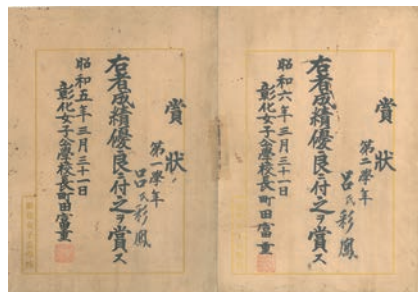 賞狀
第二學年
呂氏彩鳳
右者成績優良ニ付之ヲ賞ス
昭和六年三月三十一日
彰化女子公學校長町田富重
賞狀
第一學年
呂氏彩鳳
右者成績優良ニ付之ヲ賞ス
昭和五年三月三十一日
彰化女子公學校長町田富重